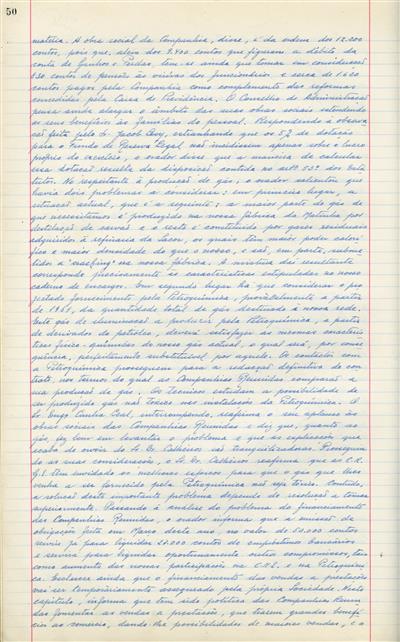 50
materia. A obra social da Companhia, disse, é da ordem dos 12.200
contos, pois que, alem dos 9.400 contos que figuram a débito da
conta de Ganhos e Perdas, tem-se ainda que tomar em consideração
830 contos de pensão às viuvas dos funcionários e cerca de 1.620
contos pagos pela Companhia como complemento das reformas
concedidas pela Caixa de Previdência. O Conselho de Administração
pensa ainda alargar o âmbito das suas obras sociais estendendo
os seus benefícios às famílias do pessoal. Respondendo à observa-
ção feita pelo Sr. Jacob Levy, estranhando que os 5% de dotação
para o Fundo de Reserva Legal não incidissem apenas sobre o lucro
próprio do exercício, o orador disse que a maneira de calcular
essa dotação resulta da disposição contida no artº 53º dos Esta-
tutos. No respeitante à produção de gás, o orador salientou que
havia dois problemas a considerar: em primeiro lugar, a
situação actual, que é a seguinte: a maior parte do gás de
que necessitamos é produzido na nossa fábrica da Matinha por
destilação de carvão e o resto é constituido por gases residuais
adquiridos à refinaria da Sacor, os quais têm maior poder calori-
fico e maior densidade do que o nosso, e são, em parte, subme-
tidos a "cracking" na nossa fábrica. A mistura daí resultante
corresponde precisamente às características estipuladas no nosso
caderno de encargos. Em segundo lugar há que considerar o pro-
jectado fornecimento pela Petroquímica, provàvelmente a partir
de 1961, da quantidade total de gás destinada à nossa rede.
Este gás de iluminação a produzir pela Petroquímica, a partir
de derivados do petróleo, deverá satisfazer às mesmas caracterís-
ticas físico-químicas do nosso gás actual, o qual será, por conse-
quência, perfeitamente substituível por aquele. Os contactos com
a Petroquímica prosseguem para a redacção definitiva do con-
trato, nos termos do qual as Companhias Reunidas comprarão a
sua produção de gás. Os Técnicos estudam a possibilidade de
ser produzido gás não tóxico nas instalações da Petroquímica. O
Sr. Engº Cunha Leal, interrompendo, reafirma o seu aplauso às
obras sociais das Companhias Reunidas e diz que, quanto ao
gás, fez bem em levantar o problema e que as explicações que
acaba de ouvir do Sr. Dr. Calheiros são tranquilizadoras. Prosseguin-
do as suas considerações, o Sr. Dr. Calheiros reafirma que as C.R.
G.E. têm envidado os melhores esforços para que o gás que lhes
venha a ser fornecido pela Petroquímica não seja tóxico. Contudo,
a solução deste importante problema depende de resolução a tomar
superiormente. Passando à análise do problema do financiamento
das Companhias Reunidas, o orador informa que a emissão de
obrigações feita em Maio deste ano, no valor de 150.000 contos
serviu já para liquidar 25.000 contos de empréstimos bancários
e servirá para liquidar oportunamente outros compromissos, tais
como aumento das nossas participações na C.N.E. e na Petroquími-
ca. Esclarece ainda que o financiamento das vendas a prestações
vai ser temporàriamente assegurado pela própria Sociedade. Neste
capítulo, informa que tem sido política das Companhias Reuni-
das fomentar as vendas a prestações, que trazem grandes benefí-
cios ao comércio, dando-lhe possibilidades de maiores vendas, e a